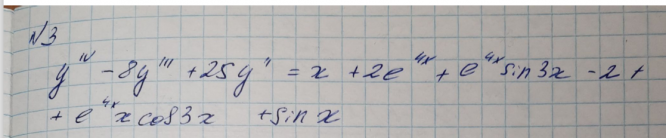 №3
y^{IV} - 8y''' + 25y'' = x + 2e^{4x} + e^{4x} sin 3x - 2 +
+ e^{4x} x cos 3x + sin x